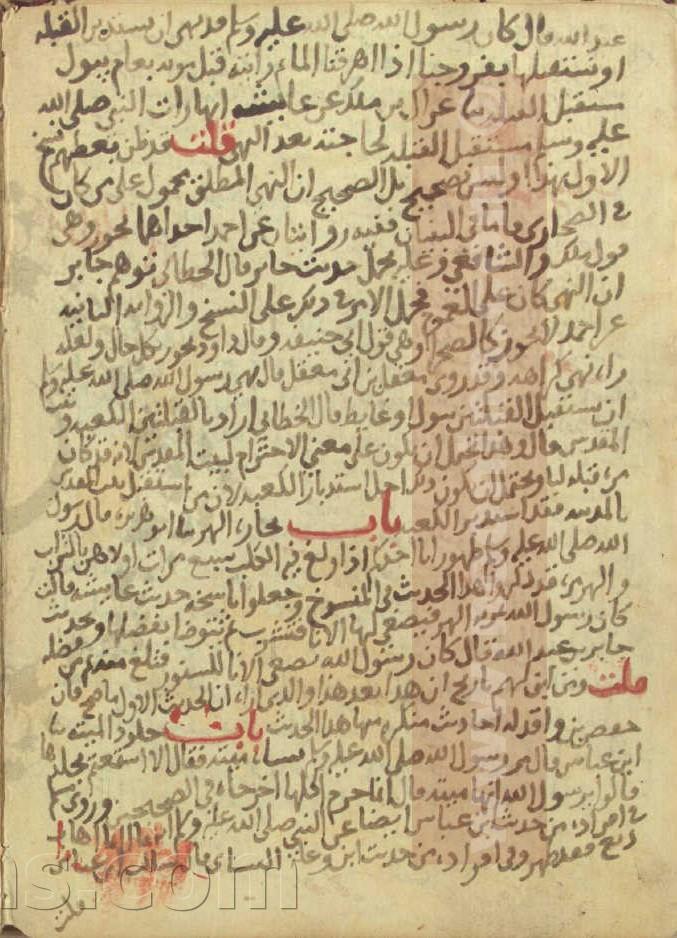 عبد الله قال كان رسول الله صلى الله عليه وسلم قد نهى ان نستدبر القبله
او نستقبلها بفروجنا اذا اهرقنا الماء ثم رايته قبل موته بعام يبول
مستقبل القبله عن عراك بن ملك عن عايشه النبي صلى الله
عليه وسلم مستقبل القبله لحاجته بعد النهى قلت قد ظن بعضهم نسخ
الاول بهذا وليس بصحيح بل الصحيح ان النهى المطلق محمول على من كان
في الصحارى فاما في البنيان ففيه روايتان عن احمد احداهما يجوز وهى
قول ملك والشافعي وعليه يحمل حديث جابر قال الخطابي توهم جابر
ان النهى كان على العموم فحمل الامر في ذلك على النسخ والروايه الثانيه
عن احمد لا يجوز كالصحراء وهى قول ابي حنيفه وقال داود يجوز بكل حال
نهى وقد روى معقل بن ابي معقل قال نهى رسول الله صلى الله عليه وسلم
ان نستقبل القبلتين ببول او غايط قال الخطابي اراد بالقبلتين الكعبه وبيت
المقدس قال وهذا يحتمل ان يكون على معنى الاحترام لبيت المقدس لانه قد كان
مره قبله لنا ويحتمل ان يكون ذلك من اجل استدبار الكعبه لان من استقبل بيت المقدس
بالمدينه فقد استدبر الكعبه باب ابو هريره قال رسول
الله صلى الله عليه وسلم طهور انا احدكم اذا ولغ فيه الكلب سبع مرات اولاهن بالتراب
والهره قد ذكروا هذا الحديث في المنسوخ وجعلوا ناسخه حديث عايشه قالت
كان رسول الله تمر به الهره فيصغى لها الانا فتشرب ثم يتوضا بفضلها وحديث
جابر بن عبد الله قال كان رسول الله يصغى الانا للسنور فيلغ فيه ثم من فضله
قلت ومن اين لهم تاريخ ان هذا بعد هذا والذى ان الحديث الاول ما صح فان
حفص بن واقد له احاديث منكره منها هذا الحديث باب جلود الميته
ابن عباس قال مر رسول الله صلى الله عليه وسلم بشاه ميته فقال الا استمتعتم بجلدها
قالوا يرسول الله انها ميته قال انما حرم اكلها اخرجاه في الصحيحين وروى مسلم
في افراده من حديث ابن عباس ايضا عن النبي صلى الله عليه وسلم ايما اهاب
دبغ فقد طهر وفي افراده من حديث ابن وعله قال ابن عباس
قلت